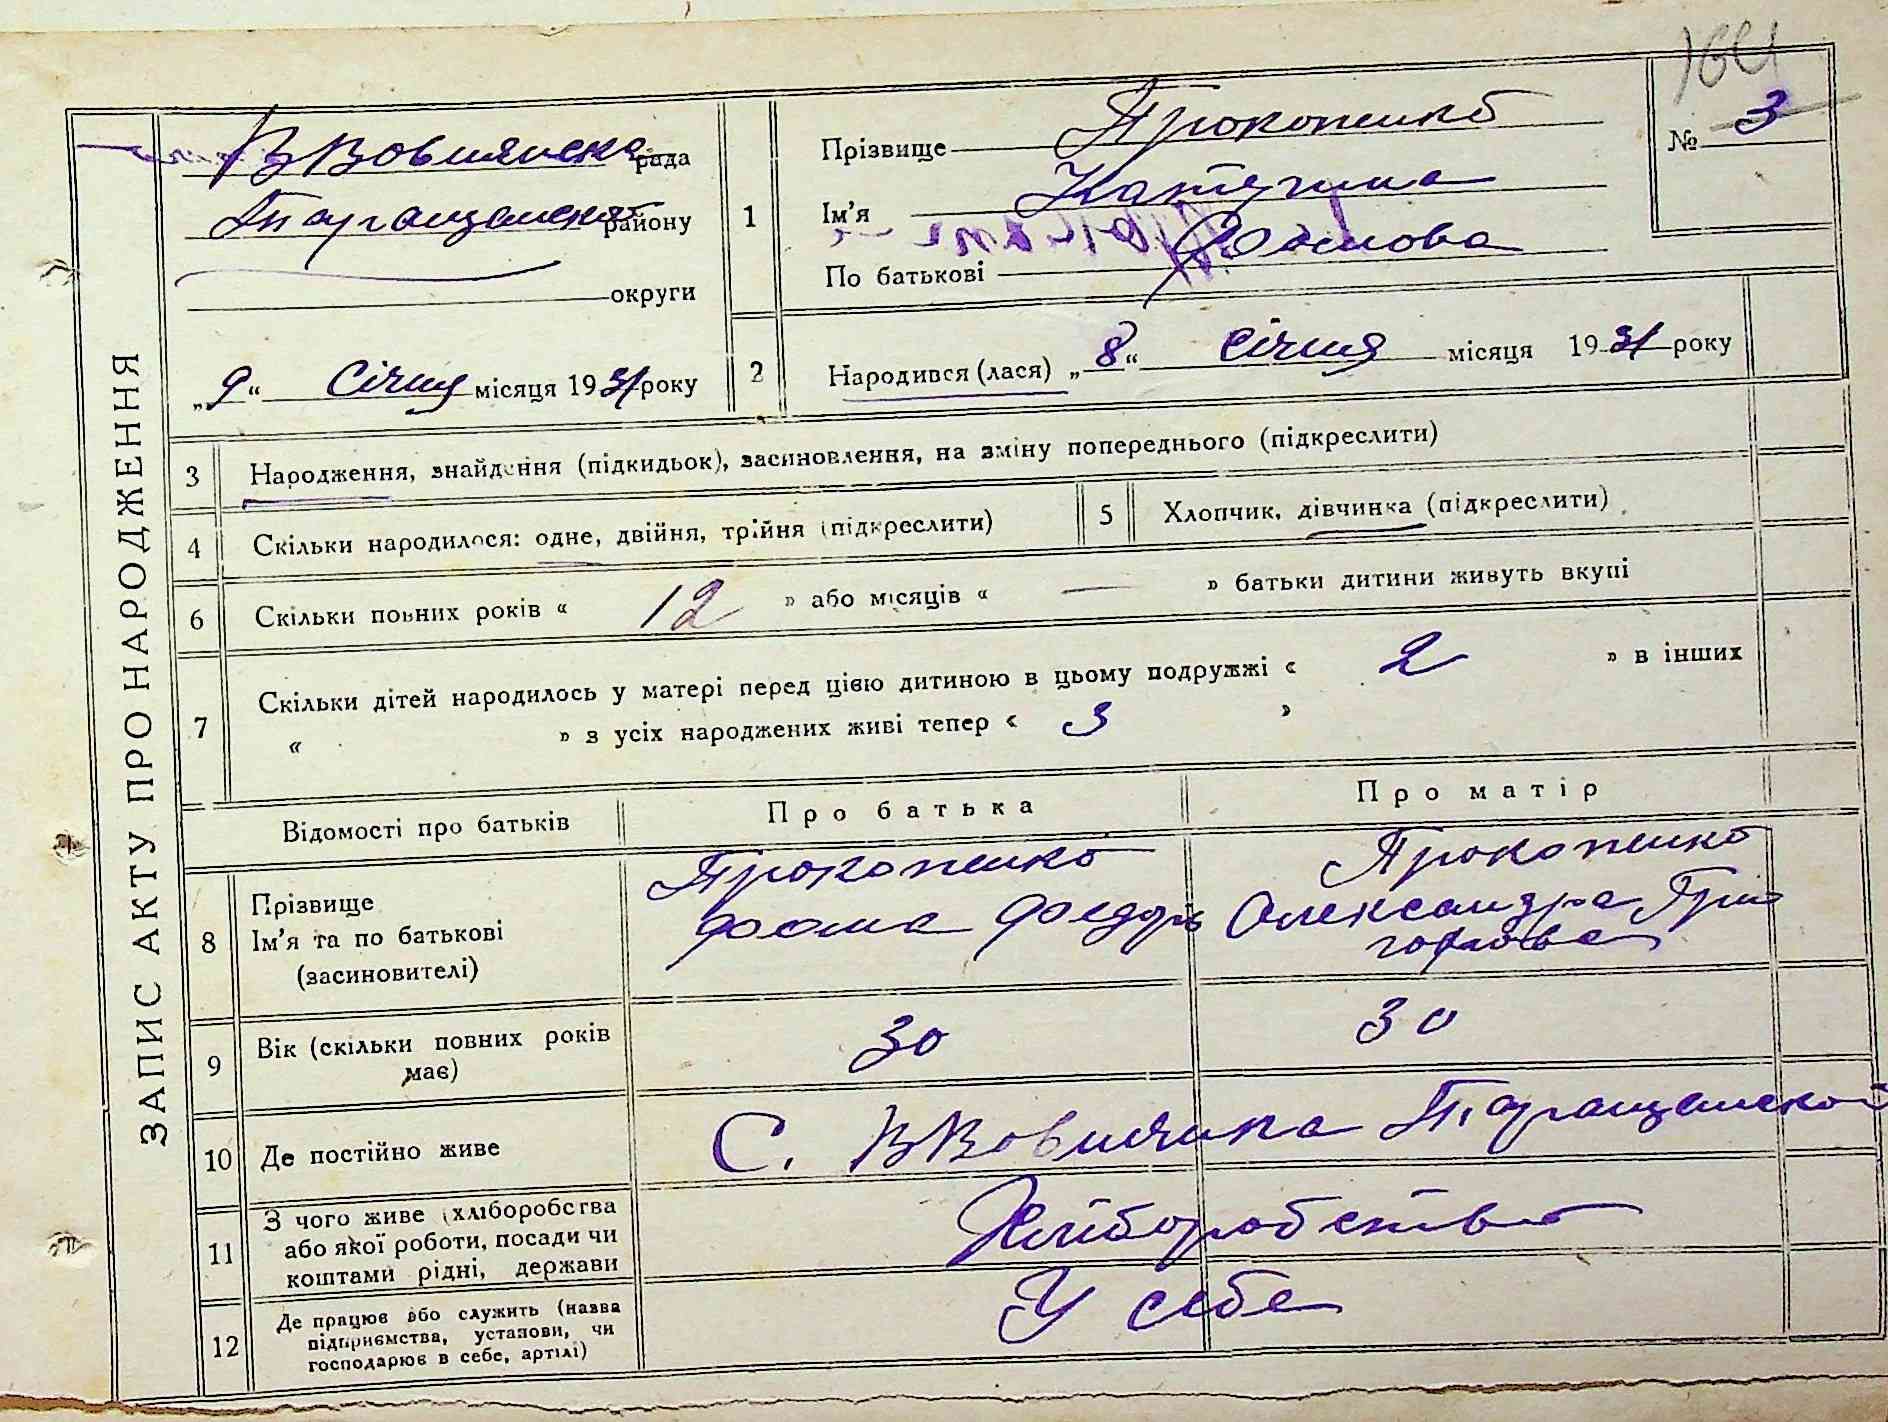 ЗАПИС АКТУ ПРО НАРОДЖЕННЯ
ВВовнянска рада
Таращанского району
округи
„9“ Січня місяця 1931 року
1
Прізвище Прокопенко
Ім'я Катерина
По батькові Фомова
164
№ 3
2
Народився (лася) „8“ Січня місяця 1931 року
3 Народження, знайдення (підкидьок), засиновлення, на зміну попереднього (підкреслити)
4 Скільки народилося: одне, двійня, трійня (підкреслити)
5 Хлопчик, дівчинка (підкреслити)
6 Скільки повних років « 12 » або місяців « — » батьки дитини живуть вкупі
7 Скільки дітей народилось у матері перед цією дитиною в цьому подружжі « 2 » в інших
« » з усіх народжених живі тепер « 3 »
Відомості про батьків
Про батька
Про матір
8 Прізвище
Ім'я та по батькові
(засиновителі)
Прокопенко
Фома Федорів
Прокопенко
Олександра Гри
горова
9 Вік (скільки повних років
має)
30
30
10 Де постійно живе
С. ВВовнянка Таращанского
11 З чого живе (хліборобства
або якої роботи, посади чи
коштами рідні, держави
Хліборобство
12 Де працює або служить (назва
підприємства, установи, чи
господарює в себе, артілі)
У себе